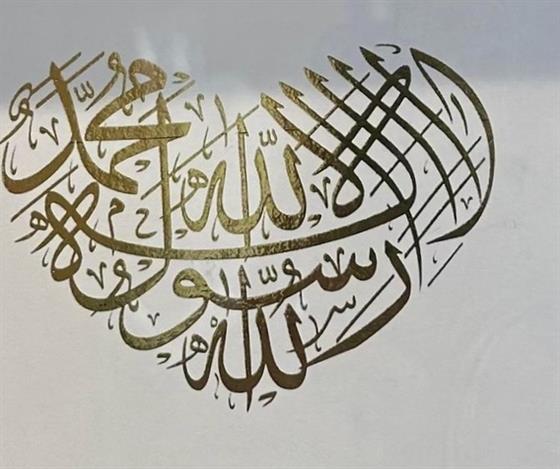 لا إله إلا الله محمد
رسول الله